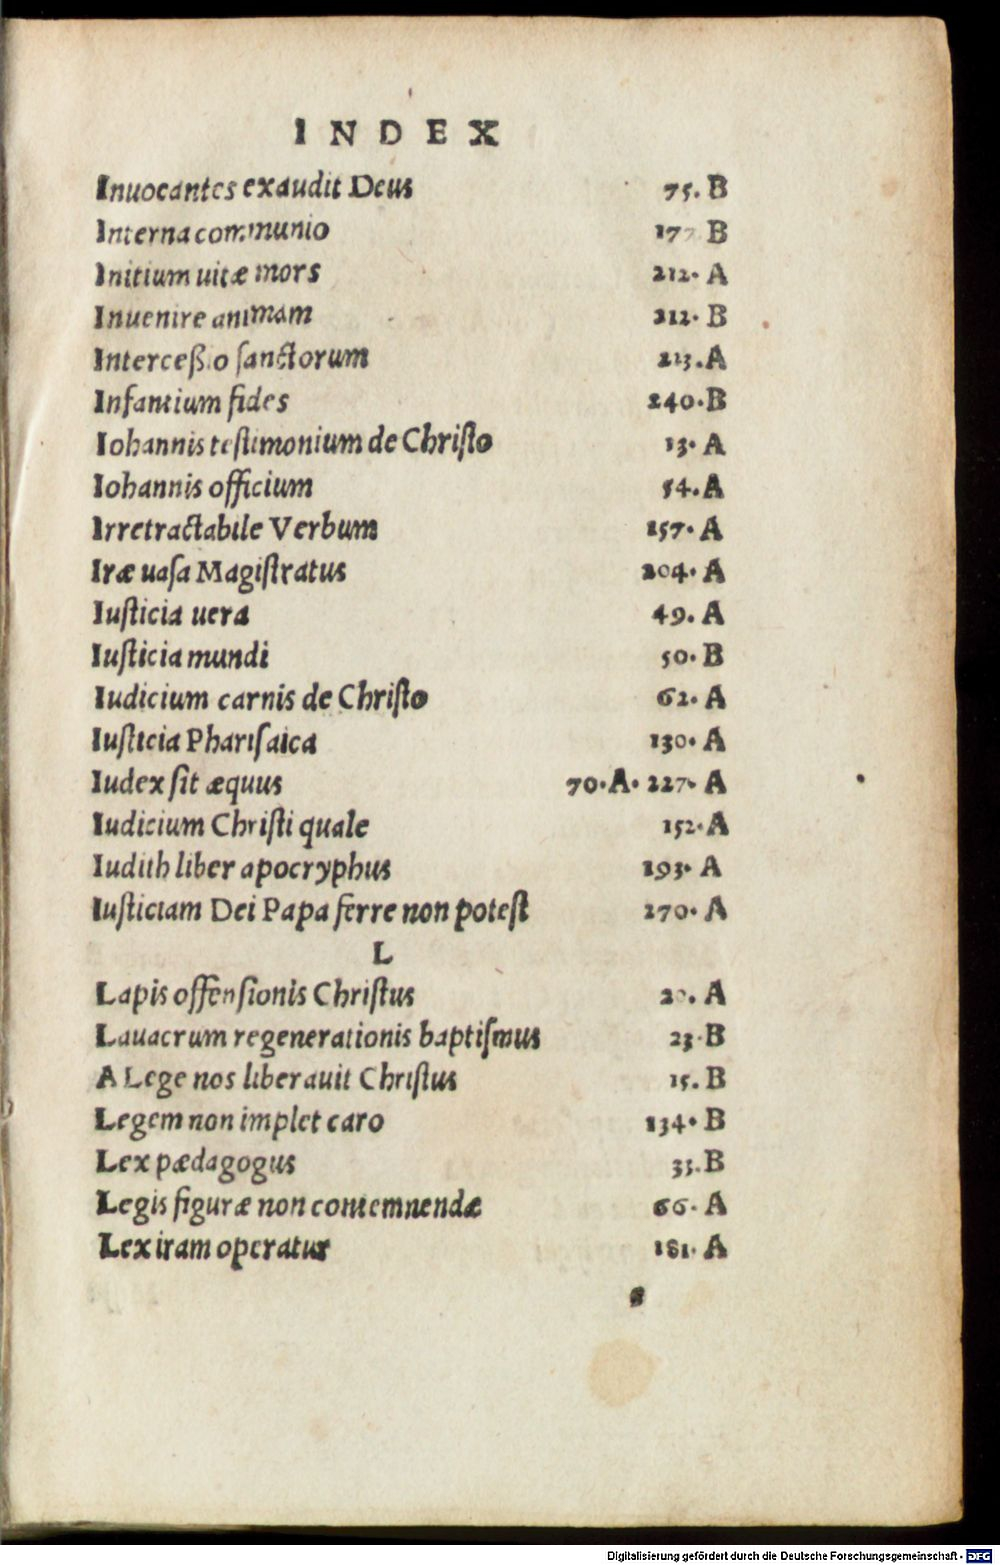 INDEX
Inuocantes exaudit Deus 75. B
Interna communio 177 B
Initium uitæ mors 212. A
Inuenire animam 212. B
Interceßio ſanctorum 213. A
Infantium fides 240. B
Iohannis teſtimonium de Chriſto 13. A
Iohannis officium 54. A
Irretractabile Verbum 157. A
Iræ uaſa Magiſtratus 204. A
Iuſticia uera 49. A
Iuſticia mundi 50. B
Iudicium carnis de Chriſto 62. A
Iuſticia Phariſaica 130. A
Iudex ſit æquus 70. A. 227. A
Iudicium Chriſti quale 152. A
Iudith liber apocryphus 193. A
Iuſticiam Dei Papa ferre non poteſt 270. A
L
Lapis offenſionis Chriſtus 20. A
Lauacrum regenerationis baptiſmus 23. B
A Lege nos liberauit Chriſtus 15. B
Legem non implet caro 134. B
Lex pædagogus 33. B
Legis figuræ non contemnendæ 66. A
Lex iram operatur 181. A
Digitalisierung gefördert durch die Deutsche Forschungsgemeinschaft - DFG